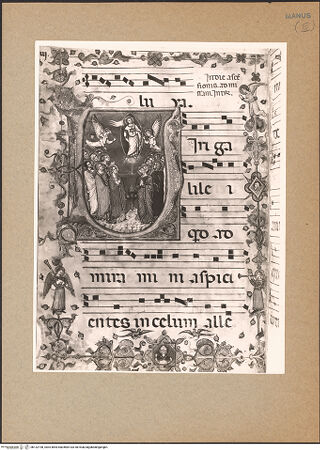 MANUS
In die asce
sionis. ad mi
sam. Intr.
lu ya.
V
In ga
lile i
qd ad
mira mi ni aspici
entes in celum alle